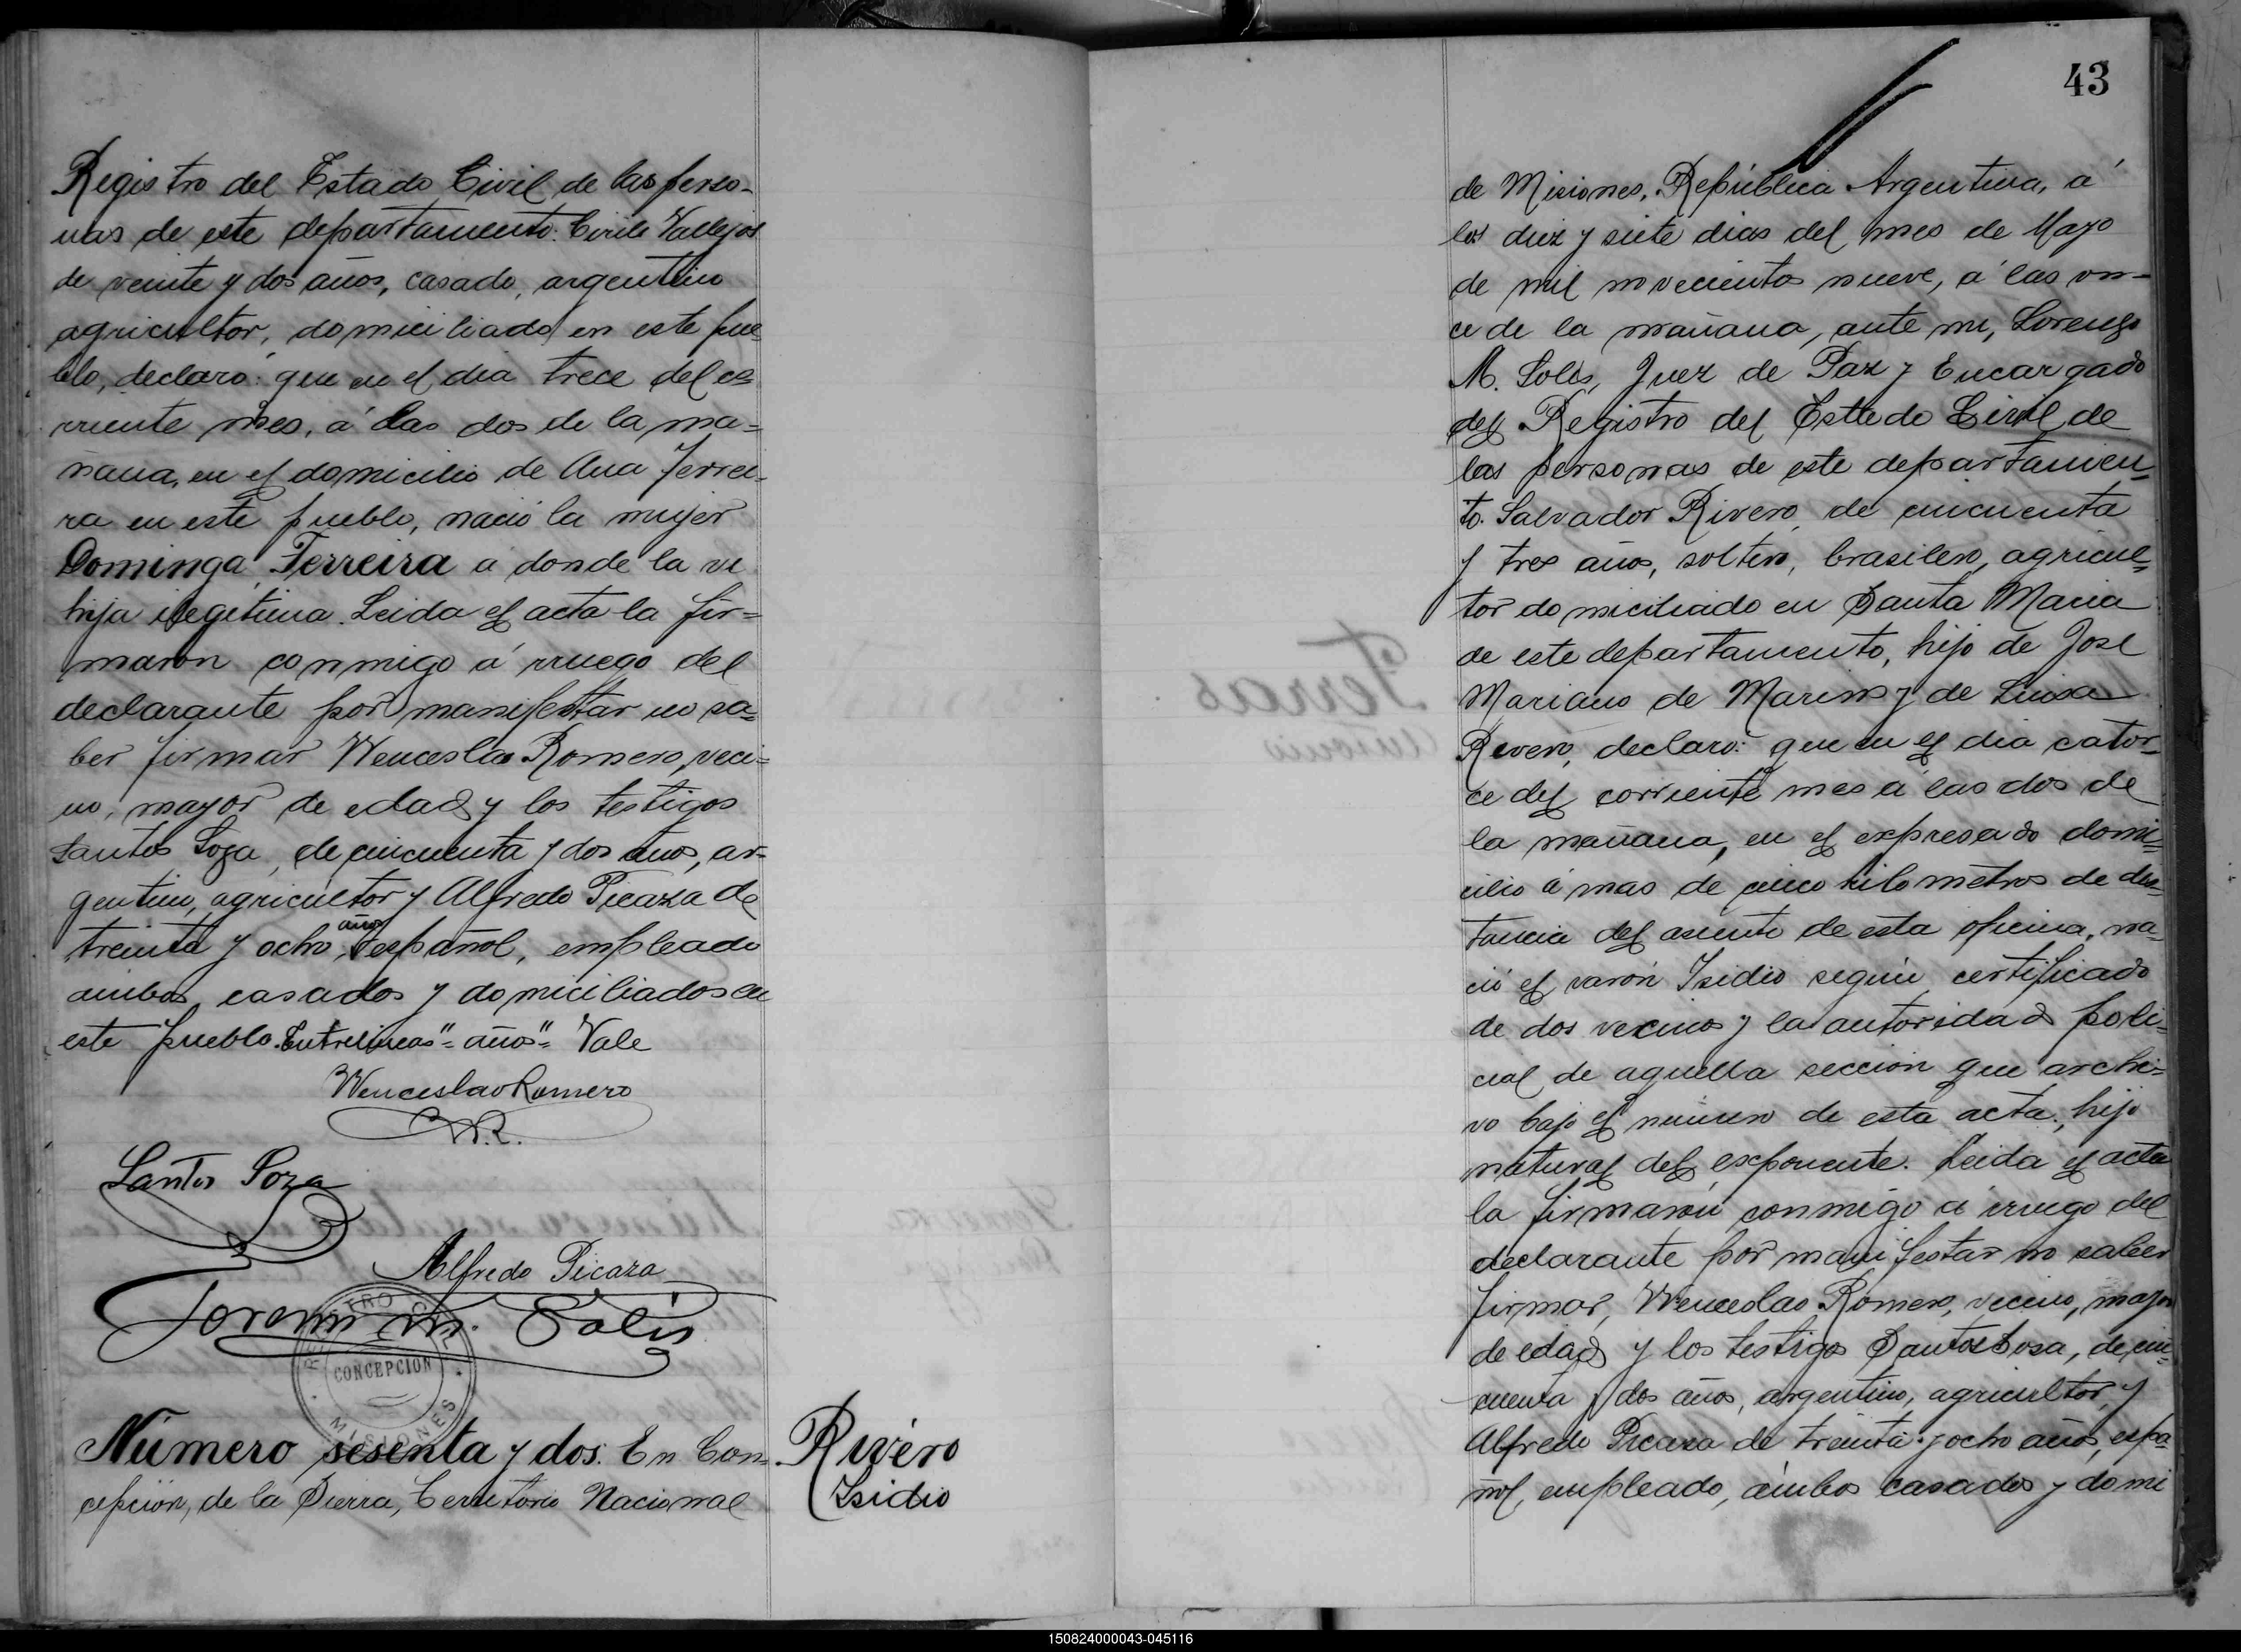 Registro del Estado Civil de las perso-
nas de este departamento. Cirilo Vallejos
de veinte y dos años, casado, argentino
agricultor, domiciliado en este pue=
blo, declaró: que en el dia trece del co=
rriente mes, á las dos de la ma=
ñana, en el domicilio de Ana Ferrei=
ra en este pueblo, nació la mujer
Dominga Ferreira a donde la vi
hija ilegitima. Leida el acta la fir=
maron conmigo á rruego del
declarante por manifestar no sa=
ber firmar Wenceslao Romero, veci=
no, mayor de edad y los testigos
Santos Soza, de cincuenta y dos años, ar-
gentino, agricultor y Alfredo Picaza de
años
treinta y ocho, español, empleado
ambos casados y domiciliados en
este pueblo. Entrelineas "=años"= Vale
Wenceslao Romero
W.R.
Santos Soza
Alfredo Picaza
Lorenzo M. Solis
REGISTRO CIVIL
CONCEPCION
MISIONES
Número sesenta y dos. En Con=
cepción, de la Sierra, Territorio Nacional
Rivéro
Isidio
43
de Misiones, República Argentina, á
los diez y siete dias del mes de Mayo
de mil novecientos nueve, á las on-
ce de la mañana, ante mi, Lorenzo
M. Solis, Juez de Paz y Encargado
del Registro del Estado Civil de
las personas de este departamen=
to. Salvador Rivero, de cincuenta
y tres años, soltero, brasilero, agricul=
tor domiciliado en Santa Maria
de este departamento, hijo de José
Mariano de Marins y de Luisa
Rivero, declaró: que en el dia cator-
ce del corriente mes á las dos de
la mañana, en el expresado domi=
cilio á mas de cinco kilometros de dis=
tancia del asiento de esta oficina, na-
ció el varón Isidio según certificado
de dos vecinos y la autoridad poli=
cial de aquella sección que archi=
vo bajo el número de esta acta, hijo
natural del exponente. Leida el acta
la firmaron conmigo á rruego del
declarante por manifestar no saber
firmar, Wenceslao Romero, vecino, mayor
de edad y los testigos Santos Sosa, de cin=
cuenta y dos años, argentino, agricultor, y
Alfredo Picaza de treinta y ocho años, espa=
ñol, empleado, ambos casados y domi
150824000043-045116